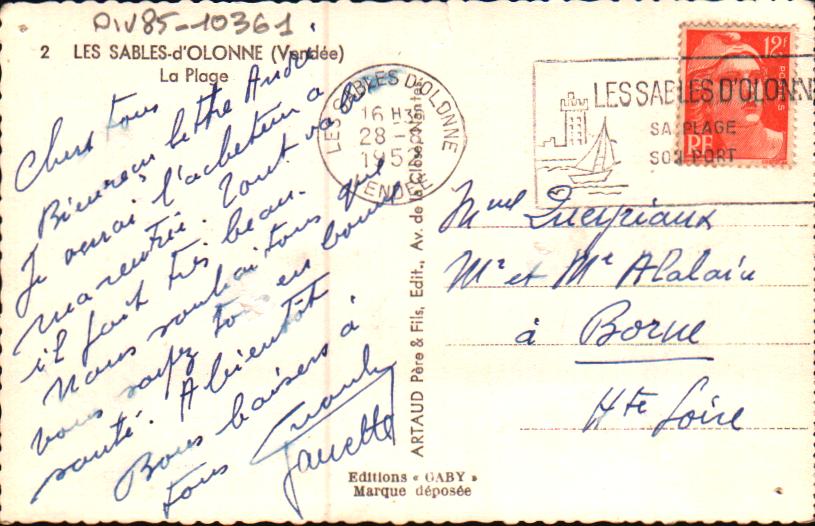 DIV85-10361
2 LES SABLES-d'OLONNE (Vendée)
La Plage
Chers tous
Bien reçu lettre André
Je aurai l'acheteur a
ma rentrée. Tout va bien
il fait très beau.
Nous souhaitons que
vous soyez tous en bonne
santé. A bientôt
Bons baisers à
tous
Janette
LES SABLES D'OLONNE
16 H
28 -
195
VENDÉE
LES SABLES D'OLONNE
SA PLAGE
SON PORT
12F
POSTES
RF
ARTAUD Père & Fils, Edit., Av. de la Close, Nantes
Mme
Mr et Me Alalain
à Borne
Hte Loire
Editions « GABY »
Marque déposée